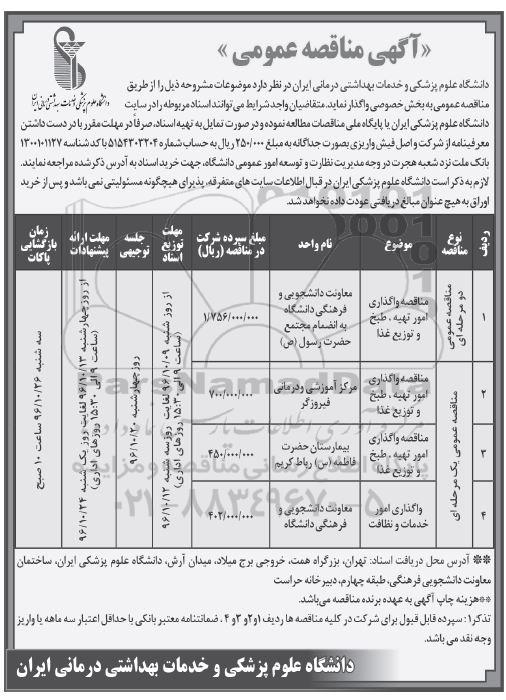 «آگهی مناقصه عمومی»
دانشگاه علوم پزشکی و خدمات بهداشتی درمانی ایران
دانشگاه علوم پزشکی و خدمات بهداشتی درمانی ایران در نظر دارد موضوعات مشروحه ذیل را از طریق
مناقصه عمومی به بخش خصوصی واگذار نماید. متقاضیان واجد شرایط می توانند اسناد مربوطه را در سایت
دانشگاه علوم پزشکی ایران یا پایگاه ملی مناقصات مطالعه نموده و در صورت تمایل به تهیه اسناد، صرفاً در مهلت مقرر با در دست داشتن
معرفینامه از شرکت و اصل فیش واریزی بصورت جداگانه به مبلغ ۲۵۰/۰۰۰ ریال به حساب شماره ۵۱۵۴۳۰۳۲۰۴ با کد شناسه ۱۳۰۰۱۰۱۱۲۷
بانک ملت نزد شعبه هجرت در وجه مدیریت نظارت و توسعه امور عمومی دانشگاه، جهت خرید اسناد به آدرس ذکر شده مراجعه نمایند.
لازم به ذکر است دانشگاه علوم پزشکی ایران در قبال اطلاعات سایت های متفرقه، پذیرای هیچگونه مسئولیتی نمی باشد و پس از خرید
اوراق به هیچ عنوان مبالغ دریافتی عودت داده نخواهد شد.
ردیف
نوع مناقصه
موضوع
نام واحد
مبلغ سپرده شرکت در مناقصه (ریال)
مهلت توزیع اسناد
جلسه توجیهی
مهلت ارائه پیشنهادات
زمان بازگشایی پاکات
۱
مناقصه عمومی دو مرحله ای
مناقصه واگذاری
امور تهیه ، طبخ
و توزیع غذا
معاونت دانشجویی و
فرهنگی دانشگاه
به انضمام مجتمع
حضرت رسول (ص)
۱/۷۵۶/۰۰۰/۰۰۰
۲
مناقصه عمومی یک مرحله ای
مناقصه واگذاری
امور تهیه ، طبخ
و توزیع غذا
مرکز آموزشی ودرمانی
فیروزگر
۷۰۰/۰۰۰/۰۰۰
۳
مناقصه واگذاری
امور تهیه ، طبخ
و توزیع غذا
بیمارستان حضرت
فاطمه (س) رباط کریم
۴۵۰/۰۰۰/۰۰۰
۴
واگذاری امور
خدمات و نظافت
معاونت دانشجویی و
فرهنگی دانشگاه
۴۰۲/۰۰۰/۰۰۰
از روز شنبه ۹۶/۱۰/۰۹ لغایت روز سه شنبه ۹۶/۱۰/۱۲
(ساعت ۹ الی ۱۵:۳۰ روزهای اداری)
روز چهارشنبه ۹۶/۱۰/۲۰
از روز چهارشنبه ۹۶/۱۰/۱۳ لغایت روز یک شنبه ۹۶/۱۰/۲۴
(ساعت ۹ الی ۱۵:۳۰ روزهای اداری)
سه شنبه ۹۶/۱۰/۲۶ ساعت ۱۰ صبح
ParsNamadData
۰۲۱-۸۸۳۴۹۶۷۰-۵
** آدرس محل دریافت اسناد: تهران، بزرگراه همت، خروجی برج میلاد، میدان آرش، دانشگاه علوم پزشکی ایران، ساختمان
معاونت دانشجویی فرهنگی، طبقه چهارم، دبیرخانه حراست
**هزینه چاپ آگهی به عهده برنده مناقصه می‌باشد.
تذکر۱: سپرده قابل قبول برای شرکت در کلیه مناقصه ها ردیف ۱و۲و ۳ و ۴ ، ضمانتنامه معتبر بانکی با حداقل اعتبار سه ماهه یا واریز
وجه نقد می باشد.
دانشگاه علوم پزشکی و خدمات بهداشتی درمانی ایران